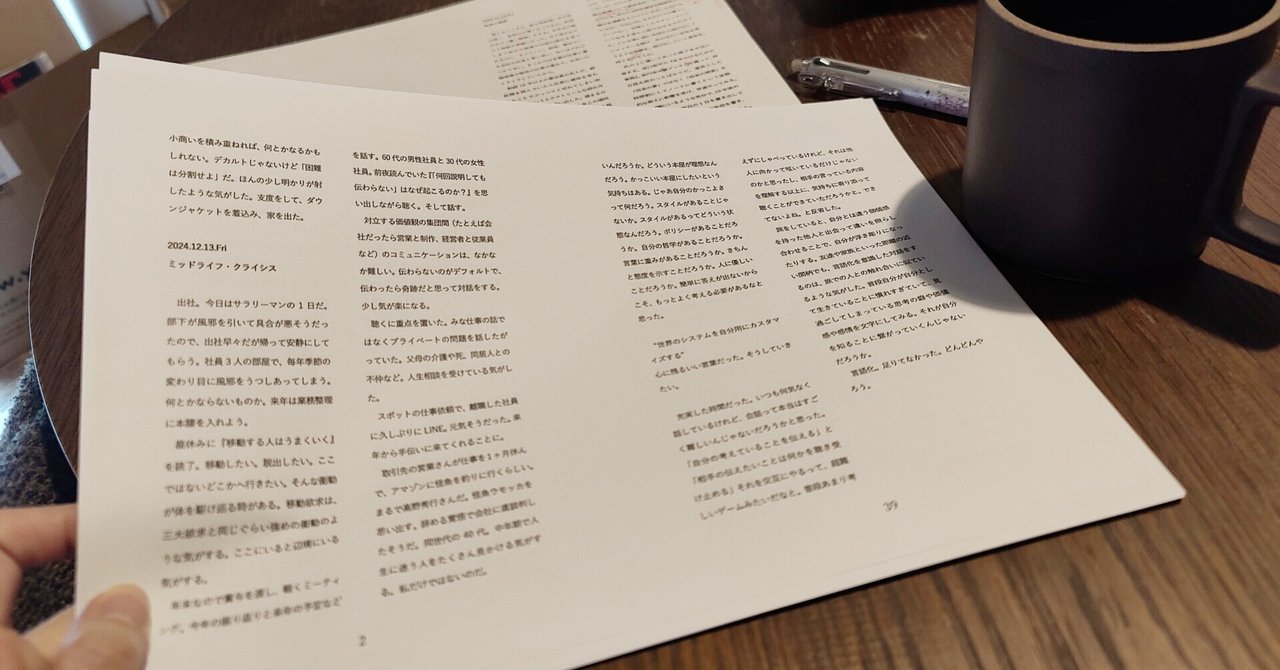 小商いを積み重ねれば、何とかなるかも
しれない。デカルトじゃないけど「困難
は分割せよ」だ。ほんの少し明かりが射
したような気がした。支度をして、ダウ
ンジャケットを着込み、家を出た。
2024.12.13.Fri
ミッドライフ・クライシス
出社。今日はサラリーマンの1日だ。
部下が風邪を引いて具合が悪そうだっ
たので、出社早々だが帰って安静にして
もらう。社員3人の部屋で、毎年季節の
変わり目に風邪をうつしあってしまう。
何とかならないものか。来年は業務整理
に本腰を入れよう。
昼休みに『移動する人はうまくいく』
を読了。移動したい。脱出したい。ここ
ではないどこかへ行きたい。そんな衝動
が体を駆け巡る時がある。移動欲求は、
三大欲求と同じぐらい強めの衝動のよ
うな気がする。ここにいると辺境にいる
気がする。
年末なので賞与を渡し、軽くミーティ
ング。今年の振り返りと来年の予定など
を話す。60代の男性社員と30代の女性
社員。前夜読んでいた『「何回説明しても
伝わらない」はなぜ起こるのか？』を思
い出しながら聴く。そして話す。
対立する価値観の集団間（たとえば会
社だったら営業と制作、経営者と従業員
など）のコミュニケーションは、なかな
か難しい。伝わらないのがデフォルトで、
伝わったら奇跡だと思って対話をする。
少し気が楽になる。
聴くに重点を置いた。みな仕事の話で
はなくプライベートの問題を話したが
っていた。父母の介護や死、同居人との
不仲など。人生相談を受けている気がし
た。
スポットの仕事依頼で、離職した社員
に久しぶりにLINE。元気そうだった。来
年から手伝いに来てくれることに。
取引先の営業さんが仕事を1ヶ月休ん
で、アマゾンに怪魚を釣りに行くらしい。
まるで高野秀行さんだ。怪魚ウモッカを
思い出す。辞める覚悟で会社に直談判し
たそうだ。同世代の40代。中年期で人
生に迷う人をたくさん見かける気がす
る。私だけではないのだ。
2
いんだろうか。どういう本屋が理想なん
だろう。かっこいい本屋にしたいという
気持ちはある。じゃあ自分のかっこよさ
って何だろう。スタイルがあることじゃ
ないか。スタイルがあるってどういう状
態なんだろう。ポリシーがあることだろ
うか。自分の哲学があることだろうか。
言葉に重みがあることだろうか。きちん
と態度を示すことだろうか。人に優しい
ことだろうか。簡単に答えが出ないから
こそ、もっとよく考える必要があるなと
思った。
“世界のシステムを自分用にカスタマ
イズする”
心に残るいい言葉だった。そうしていき
たい。
充実した時間だった。いつも何気なく
話しているけれど、会話って本当はすご
く難しいんじゃないだろうかと思った。
「自分の考えていることを伝える」と
「相手の伝えたいことは何かを聴き受
け止める」それを交互にやるって、超難
しいゲームみたいだなと。普段あまり考
えずにしゃべっているけれど、それは他
人に向かって呟いているだけじゃない
のかと思ったし、相手の言っている内容
を理解する以上に、気持ちに寄り添って
聴くことができていただろうかと。でき
てないよね。と反省した。
旅をしていると、自分とは違う価値観
を持った他人と出会って違いを照らし
合わせることで、自分が浮き彫りになっ
たりする。友達や家族といった距離の近
い間柄でも、言語化を意識した対話をす
るのは、旅での人との触れ合いに似てい
るような気がした。普段自分が自分とし
て生きていることに慣れすぎていて、見
過ごしてしまっている思考の癖や価値
感や感情を文字にしてみる。それが自分
を知ることに繋がっていくんじゃない
だろうか。
言語化。足りてなかった。どんどんや
ろう。
39